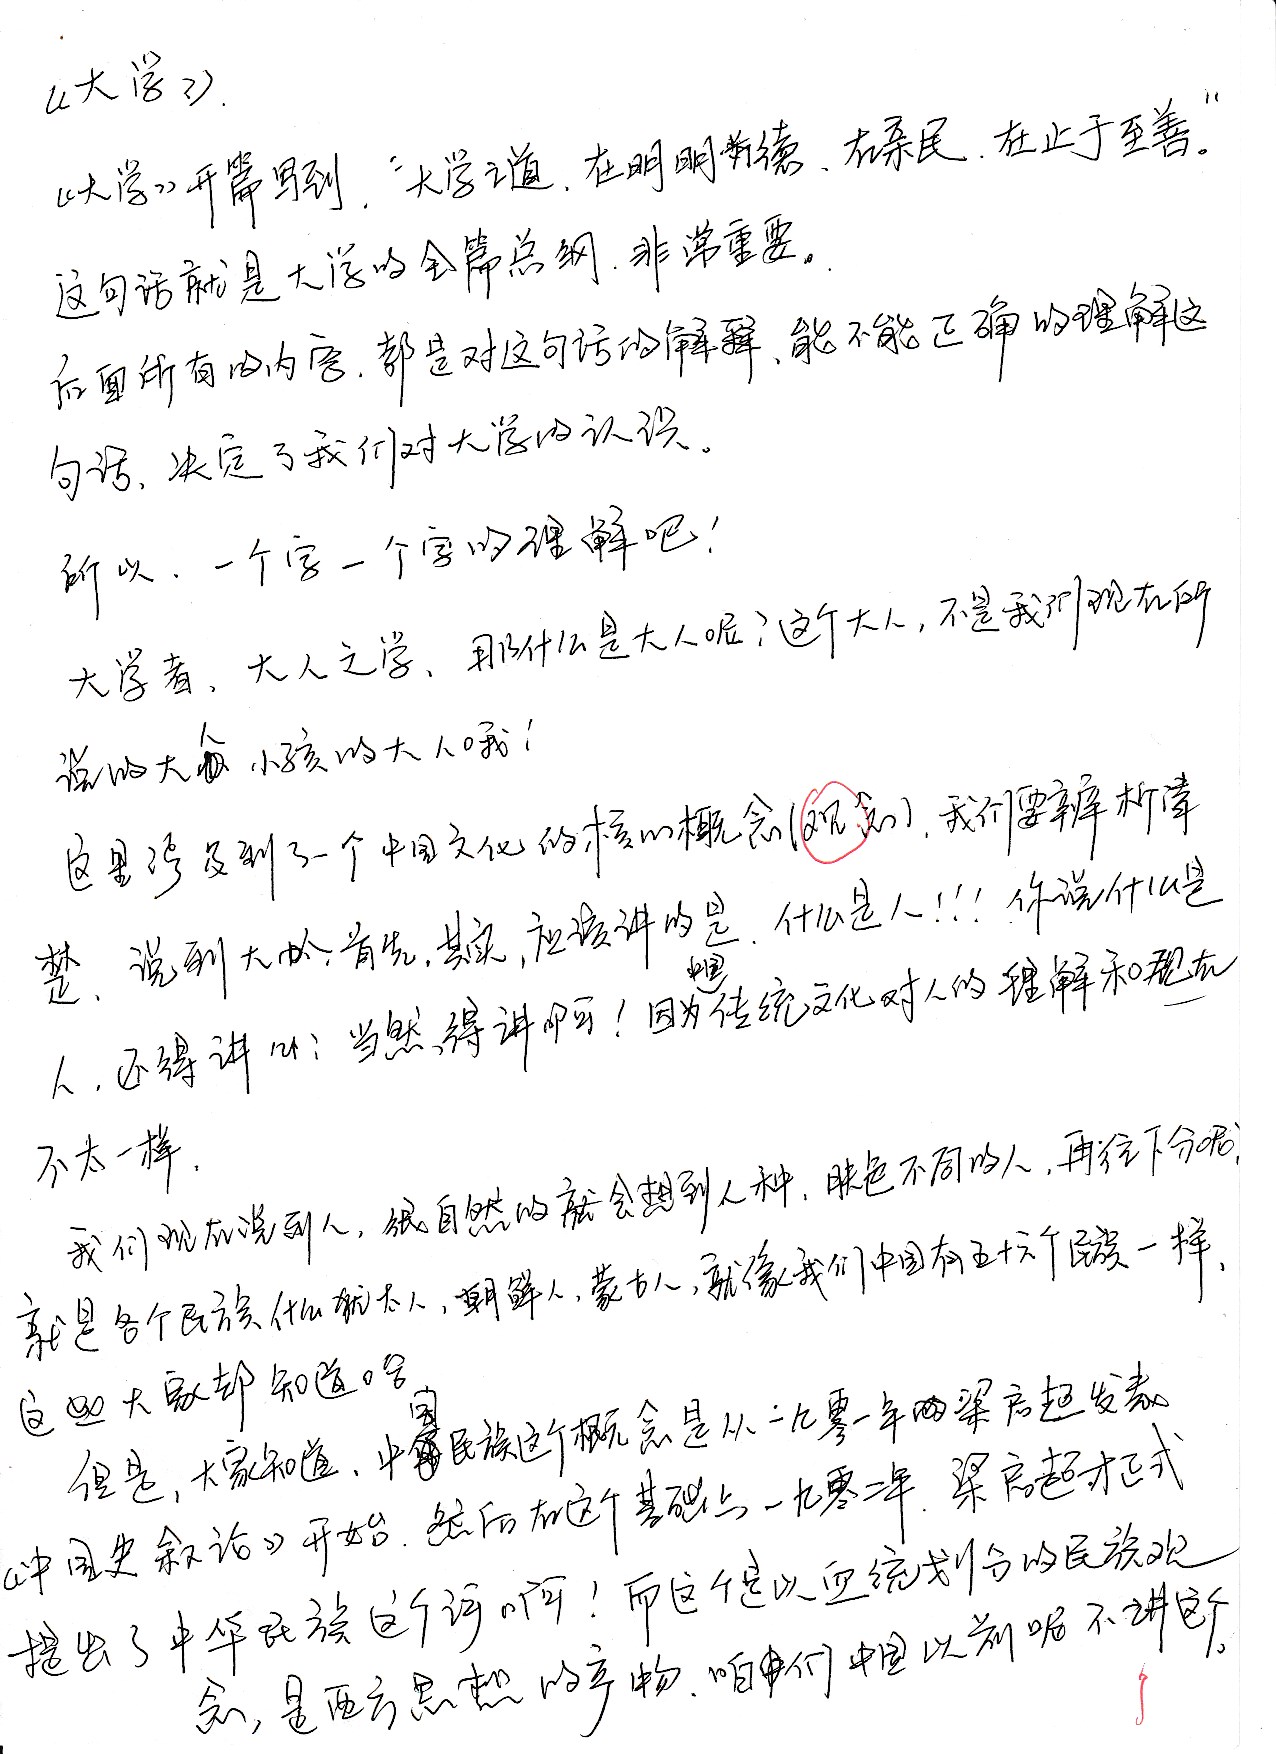 《大学》.
《大学》开篇写到，“大学之道、在明明德、在亲民、在止于至善。”
这句话就是大学的全篇总纲、非常重要。
后面所有的内容、都是对这句话的解释、能不能正确的理解这
句话、决定了我们对大学的认识。
所以、一个字一个字的理解吧！
大学者、大人之学、那什么是大人呢？这个大人，不是我们现在所
说的大人小孩的大人哦！
这里涉及到了一个中国文化的核心概念（观念）、我们要辨析清
楚、说到大人、首先，其实，应该讲的是、什么是人！！！你说什么是
人、还得讲吗？当然得讲啊！因为中国传统文化对人的理解和现在
不太一样，
我们现在说到人，很自然的就会想到人种、肤色不同的人、再往下分呢？
就是各个民族什么犹太人，朝鲜人，蒙古人，就像我们中国有五十六个民族一样、
这些大家都知道哈
但是，大家知道、中国民族这个概念是从一九零一年梁启超发表
《中国史叙论》开始、然后在这个基础上一九零二年、梁启超才正式
提出了中华民族这个词啊！而这个是以血统划分的民族观
念，是西方思想的产物、咱们中国以前呢不讲这个。